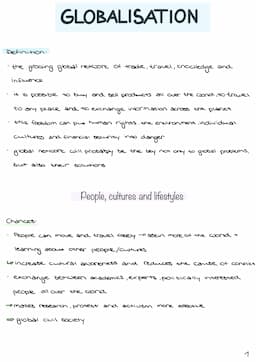 GLOBALISATION
Definition:
· the growing global network of trade, travel, knowledge and
influence
· it is possible to buy and sell products all over the world, to travel
to any place and to exchange information across the planet
· this freedom can put human rights, the environment, individual
cultures and financial security into danger
· global network will probably be the key not only to global problems,
but also their solutions
People, cultures and lifestyles
Chances:
· People can move and travel freely → seen more of the world +
learning about other people/cultures
↳ increase cultural awareness and reduces the cause of conflict
· exchange between academics, experts, politically interested
people all over the world
→ makes research, protest and activism more effective
⇒ global civil society
1